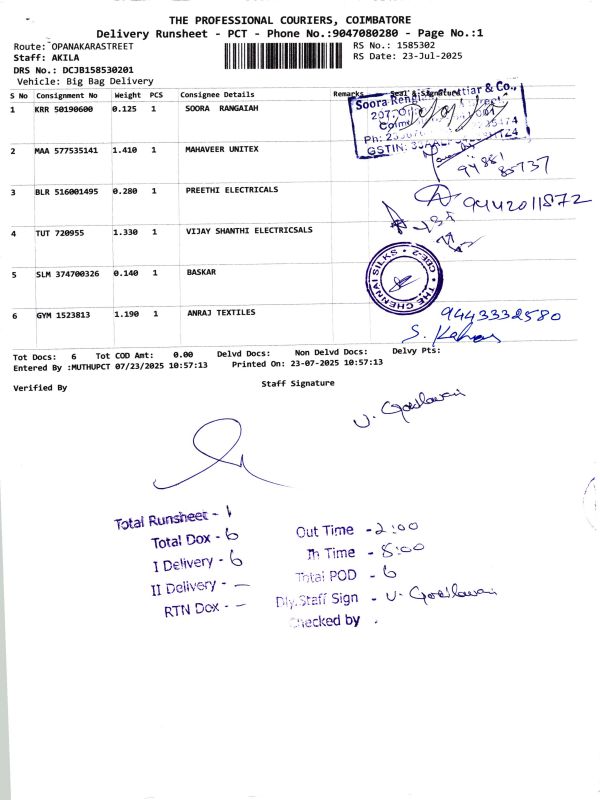 THE PROFESSIONAL COURIERS, COIMBATORE
Delivery Runsheet - PCT - Phone No.:9047080280 - Page No.:1
Route: OPANAKARASTREET
RS No.: 1585302
Staff: AKILA
RS Date: 23-Jul-2025
DRS No.: DCJB158530201
Vehicle: Big Bag Delivery
S No Consignment No Weight PCS Consignee Details Remarks Seal & Signature
1 KRR 50190600 0.125 1 SOORA RANGAIAH
Soora & Co.,
207,
Ph:
GSTIN:
2 MAA 577535141 1.410 1 MAHAVEER UNITEX
94881
85737
3 BLR 516001495 0.280 1 PREETHI ELECTRICALS
9442011872
4 TUT 720955 1.330 1 VIJAY SHANTHI ELECTRICSALS
5 SLM 374700326 0.140 1 BASKAR
THE CHENNAI SILKS • CBE-2 •
6 GYM 1523813 1.190 1 ANRAJ TEXTILES
9443332580
Tot Docs: 6 Tot COD Amt: 0.00 Delvd Docs: Non Delvd Docs: Delvy Pts:
Entered By :MUTHUPCT 07/23/2025 10:57:13 Printed On: 23-07-2025 10:57:13
Verified By Staff Signature
Total Runsheet - 1
Total Dox - 6
I Delivery - 6
II Delivery - —
RTN Dox - —
Out Time - 2:00
In Time - 8:00
Total POD - 6
Dly.Staff Sign -
Checked by .